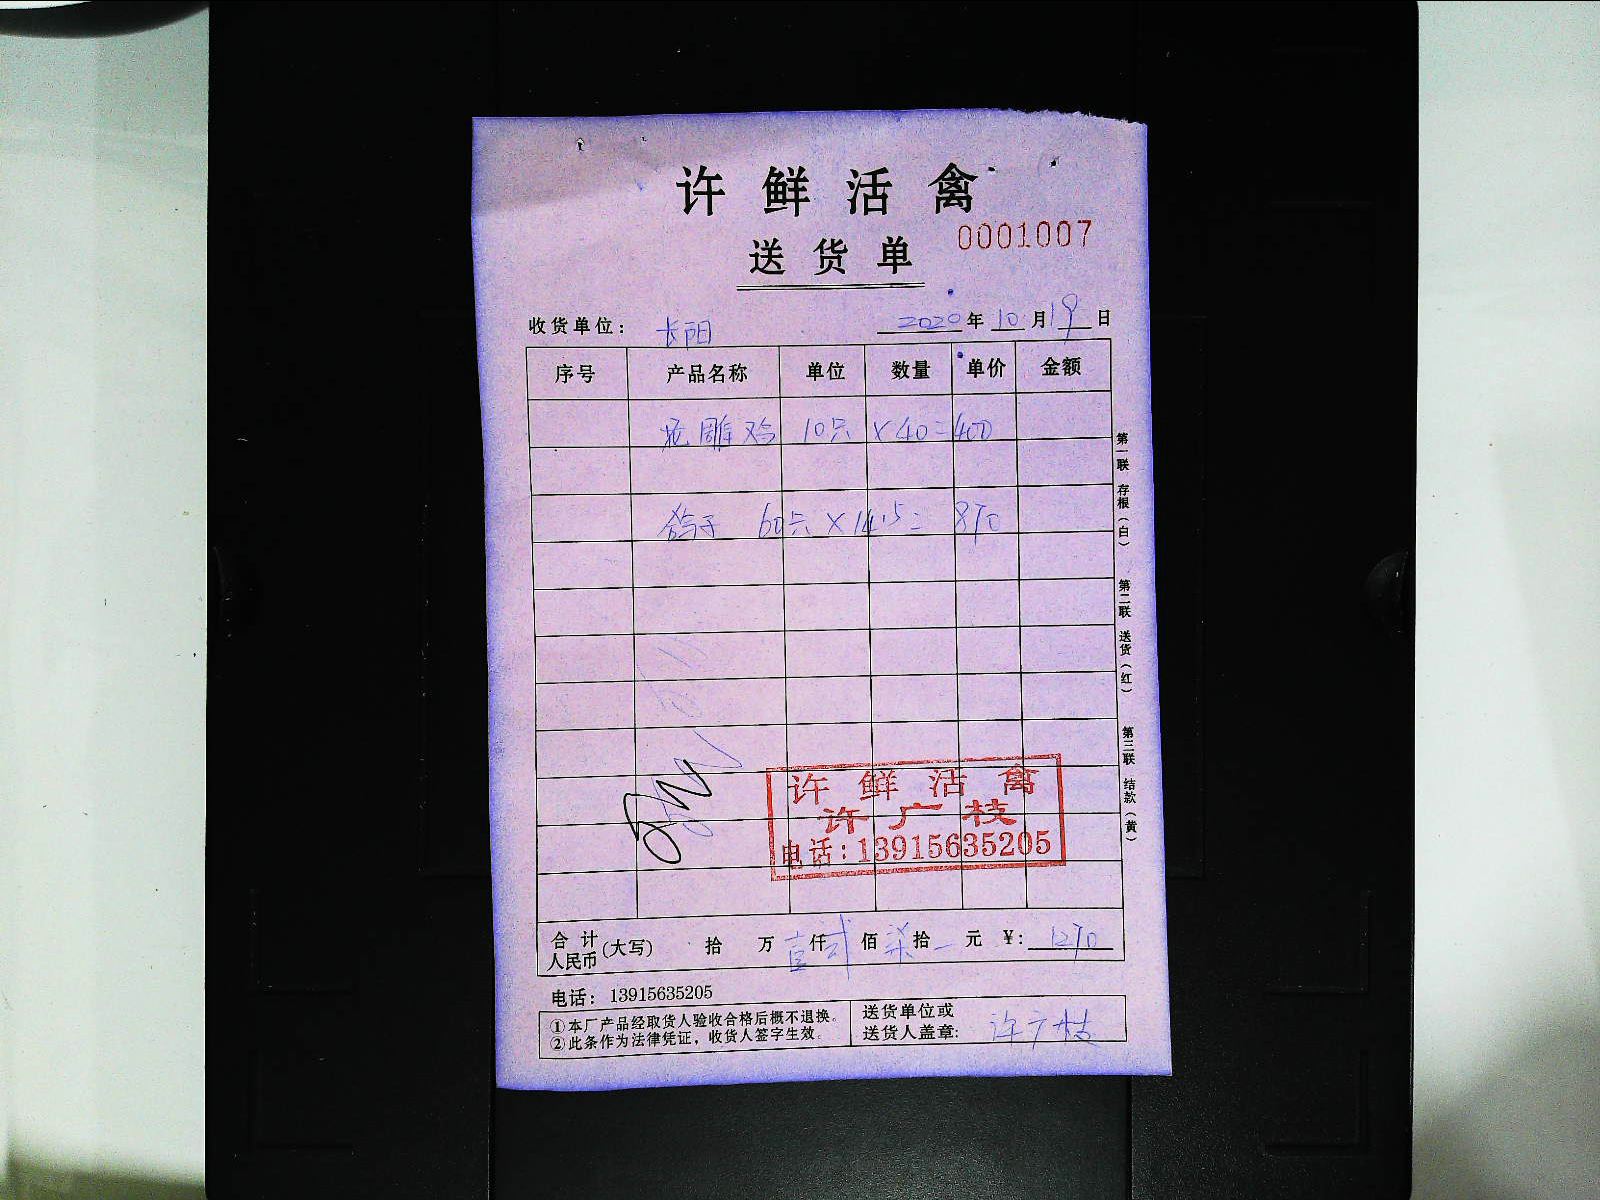 许鲜活禽
送货单 0001007
收货单位: 长阳 2020年10月19日
序号 产品名称 单位 数量 单价 金额
雕鸡 10只 ×40=400
鸽子 60只×14.5= 870
第一联 存根(白) 第二联 送货(红) 第三联 结款(黄)
许鲜活禽
许广枝
电话:13915635205
合计人民币(大写) 拾 万 壹仟 弍佰 柒拾 一元 ¥: 1270
电话: 13915635205
①本厂产品经取货人验收合格后概不退换。
②此条作为法律凭证,收货人签字生效。
送货单位或
送货人盖章: 许广枝